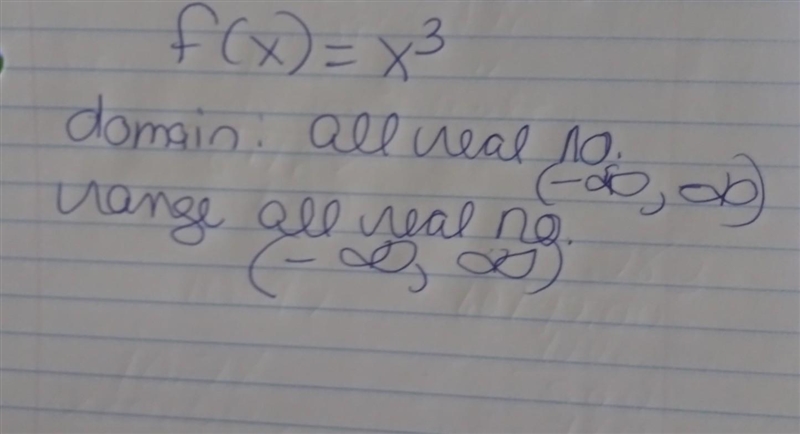 f(x) = x³
domain: all real no.
(-∞, ∞)
range all real no.
(-∞, ∞)